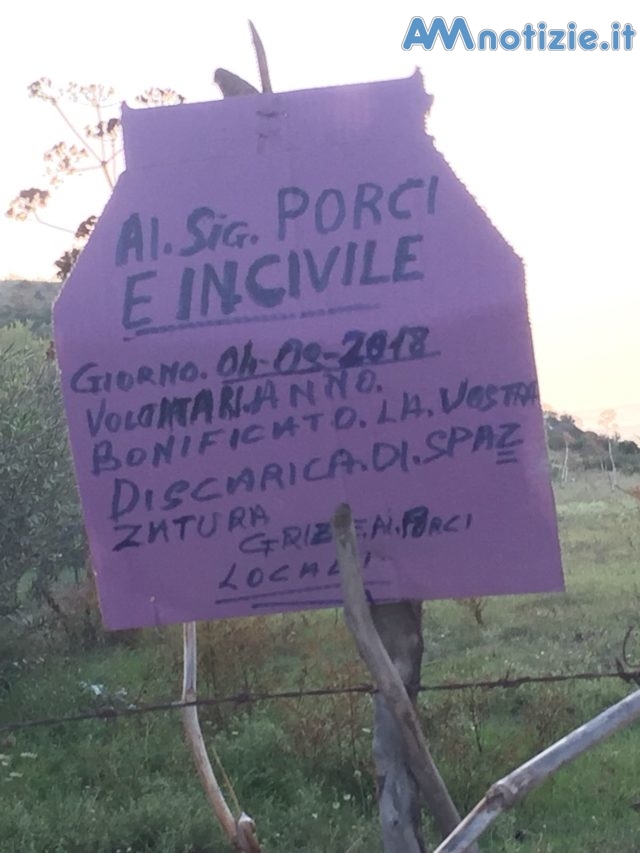 AMnotizie.it
AI. SIG. PORCI
E INCIVILE
GIORNO. 04-09-2018
VOLONTARI. ANNO.
BONIFICATO. LA. VOSTRA
DISCARICA. DI. SPAZ
ZATURA
AI. PORCI
LOCALI